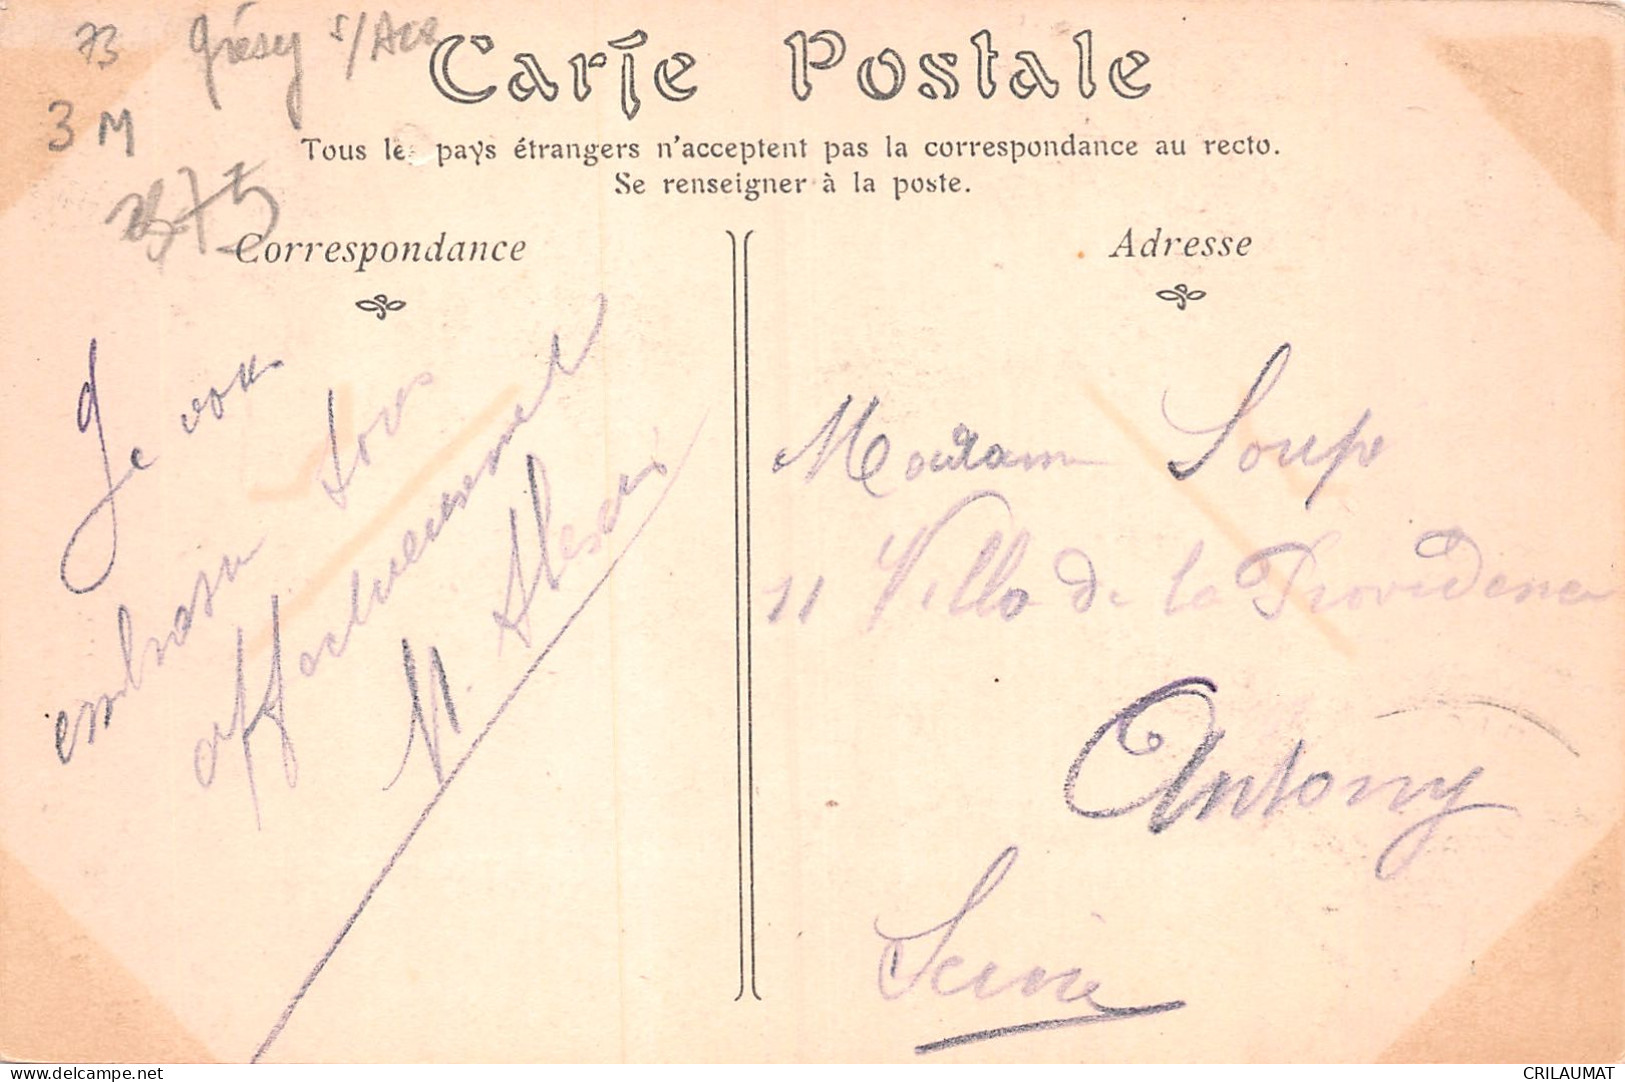 73 Grésy s/Aix
3 M
Carte Postale
Tous les pays étrangers n'acceptent pas la correspondance au recto.
Se renseigner à la poste.
Correspondance
Je vous
embrasse tous
affectueusement
M.
Adresse
Madame Soupe
11 Villa de la Providence
Antony
Seine
CRILAUMAT